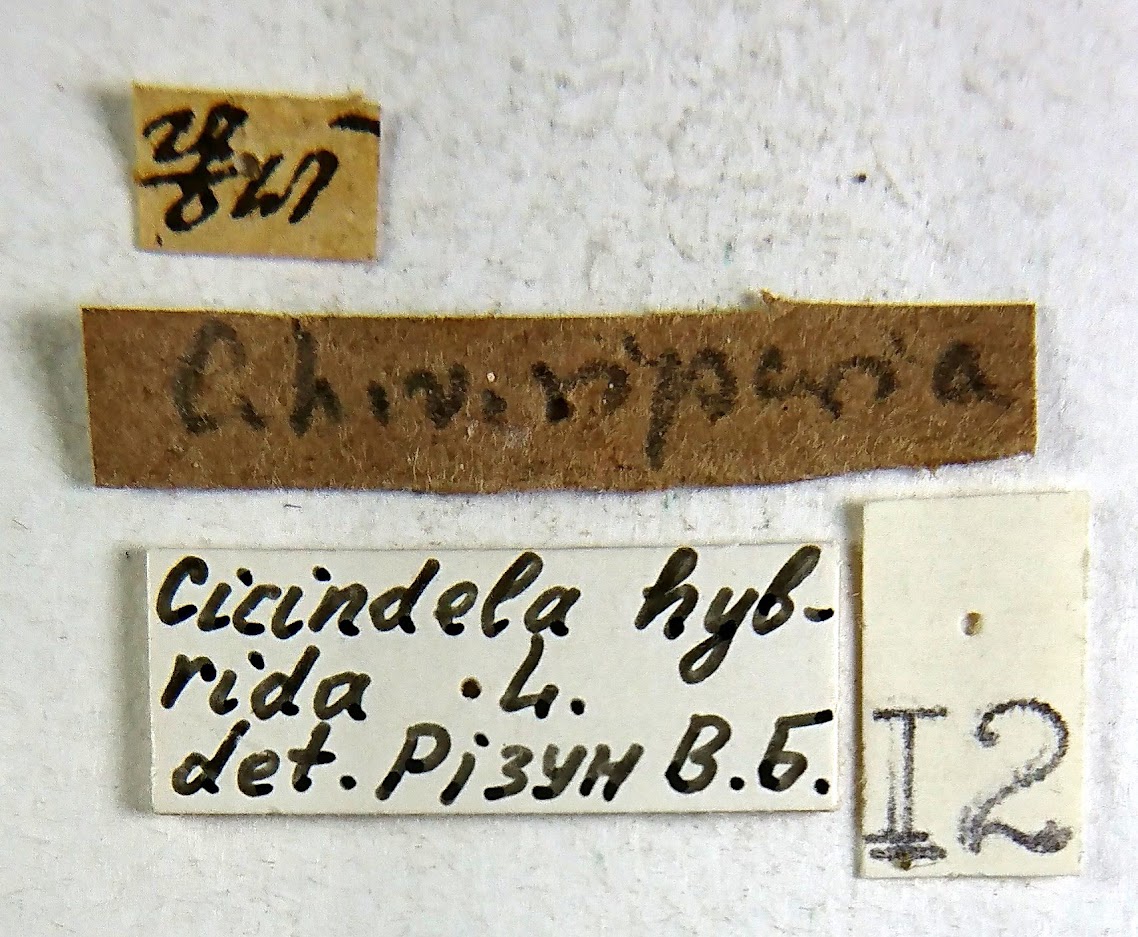 C. h. v. riparia
Cicindela hyb-
rida L.
det. Різун В.Б.
I2